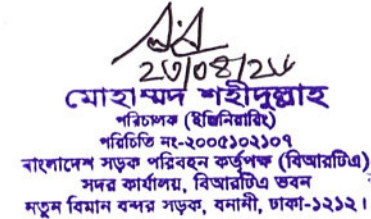 ২৩/০৪/২৫
মোহাম্মদ শহীদুল্লাহ
পরিচালক (ইঞ্জিনিয়ারিং)
পরিচিতি নং-২০০৫১০২১০৭
বাংলাদেশ সড়ক পরিবহন কর্তৃপক্ষ (বিআরটিএ)
সদর কার্যালয়, বিআরটিএ ভবন
নতুন বিমান বন্দর সড়ক, বনানী, ঢাকা-১২১২।